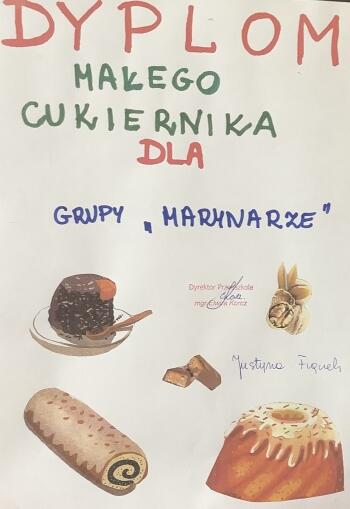 DYPLOM
MAŁEGO
CUKIERNIKA
DLA
GRUPY „MARYNARZE"
Dyrektor Przedszkola
mgr Korcz
Justyna